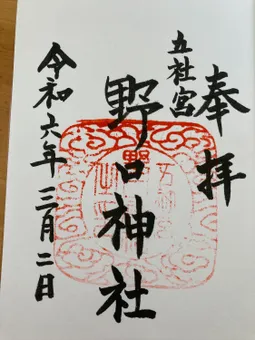 奉拝
五社宮
野口神社
令和六年三月二日